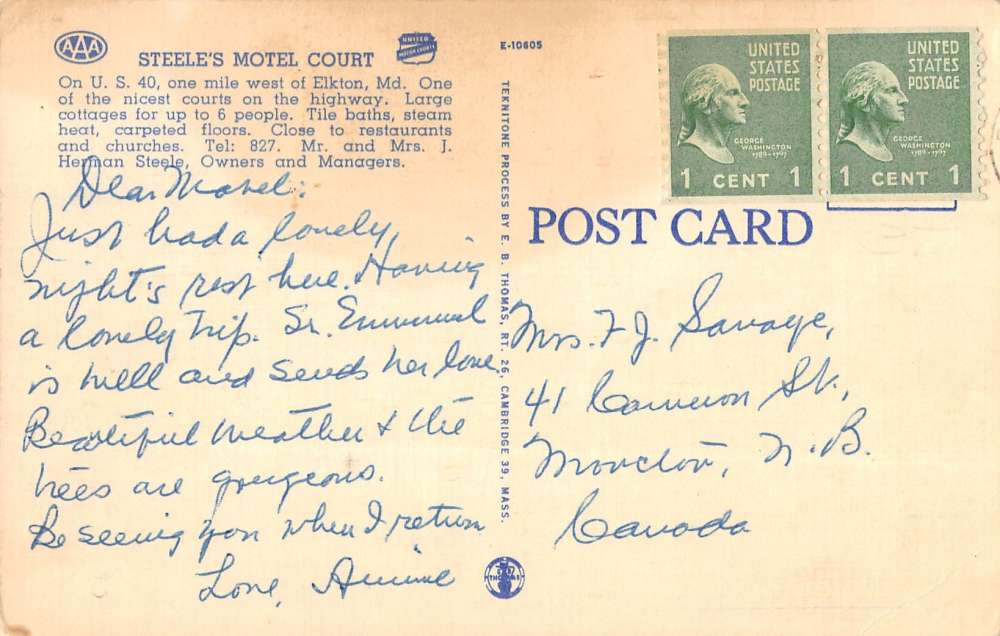 AAA
UNITED
MOTOR COURTS
STEELE'S MOTEL COURT
On U. S. 40, one mile west of Elkton, Md. One
of the nicest courts on the highway. Large
cottages for up to 6 people. Tile baths, steam
heat, carpeted floors. Close to restaurants
and churches. Tel: 827. Mr. and Mrs. J.
Herman Steele, Owners and Managers.
Dear Mabel:
Just had a lovely
night's rest here. Having
a lovely trip. Sr. Emmanuel
is well and sends her love.
Beautiful weather & the
trees are gorgeous.
Be seeing you when I return
Love,
E-10605
TEKNITONE PROCESS BY E. B. THOMAS, RT. 26, CAMBRIDGE 39, MASS.
THOMAS
UNITED
STATES
POSTAGE
GEORGE
WASHINGTON
1789-1797
1 CENT 1
UNITED
STATES
POSTAGE
GEORGE
WASHINGTON
1789-1797
1 CENT 1
POST CARD
Mrs. F J. Savage,
41 Cameron St.,
Moncton, N.B.
Canada